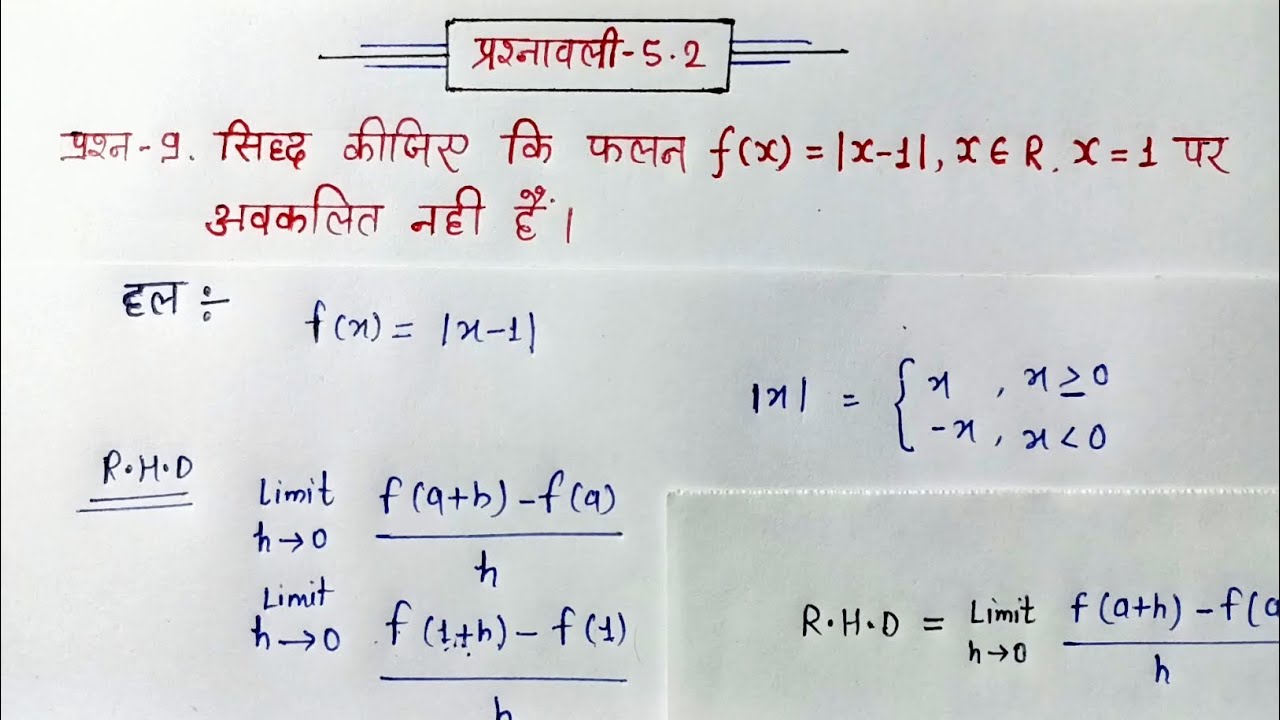 प्रश्नावली-5.2
प्रश्न-9. सिद्ध कीजिए कि फलन f(x) = |x-1|, x ∈ R. x = 1 पर
अवकलित नही हैं।
हल ÷
f(x) = |x-1|
|x| = { x , x ≥ 0
-x , x < 0
R.H.D
Limit h→0 f(a+h) - f(a) / h
Limit h→0 f(1+h) - f(1) / h
R.H.D = Limit h→0 f(a+h) - f(a / h